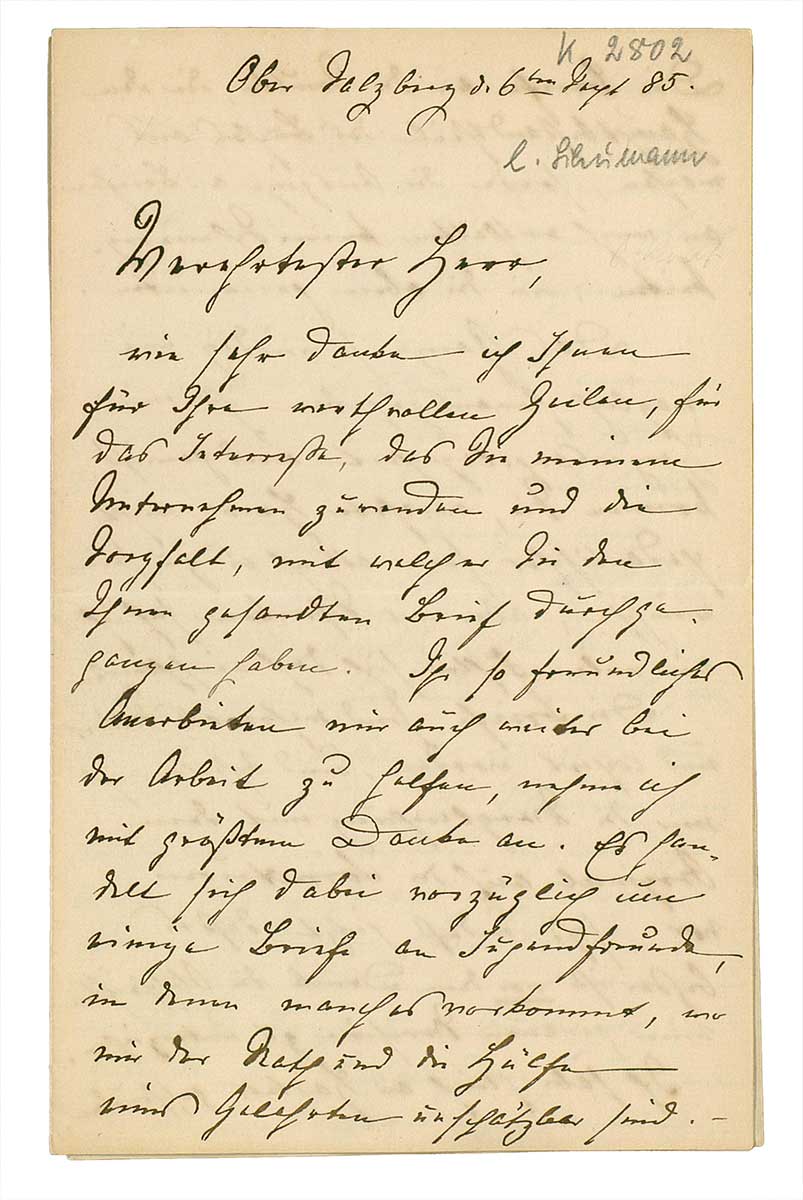 K 2802
Ober Salzberg d. 6ten Sept 85.
C. Schumann
Verehrtester Herr,
wie sehr danke ich Ihnen
für Ihre werthvollen Zeilen, für
das Interesse, das Sie meinem
Unternehmen zuwenden und die
Sorgfalt, mit welcher Sie den
Ihnen gesandten Brief durchge-
gangen haben. Ihr so freundliches
Anerbieten mir auch weiter bei
der Arbeit zu helfen, nehme ich
mit größtem Danke an. Es han-
delt sich dabei vorzüglich um
einige Briefe an Jugendfreunde,
in denen manches vorkommt, wo
mir der Rath und die Hülfe
eines Gelehrten unschätzbar sind. –